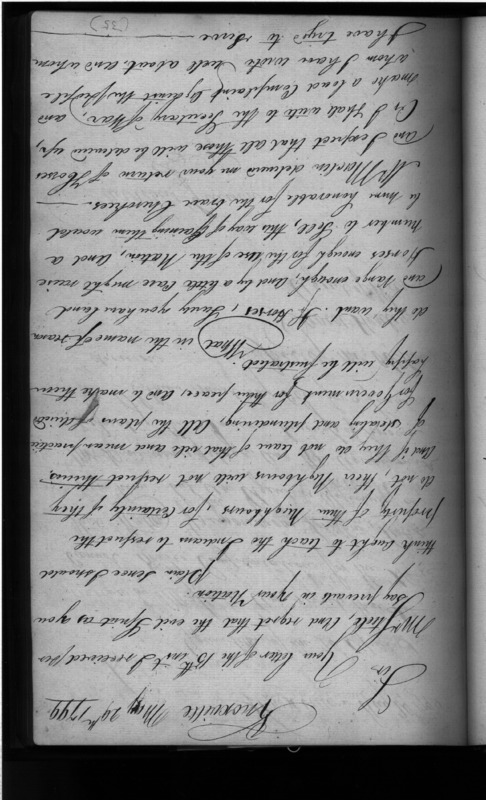 Knoxville May 29th 1799
Sir
Your letter of the 13th inst I received per
Mr Hale, And regret that the evil Spirit as you
say prevails in your Nation.
Plain sence I should
think ought to teach the Indians to respect the
property of their Neighbours, for Certainly if they
do not their Neighbours will not respect theirs.
And if they do not leave of that vile and mean practice
of stealing and plundering all the plans devised
by Government for their peace, and to make them
happy will be frustrated.
What in the name of
do they want. If Horses, Surely you have land
and range enough, and by a little care might raise
Horses enough for the use of the Nation, and a
number to sell, this way of gaining them would
be more honorable for the brave Cherokees.
Mr delivered me your return of Horses
and I expect that all these will be delivered up,
Or I shall write to the Secretary of War, and
make a loud Complaint against the people
whom I have wrote well about and whom
I have tryed to serve
(35)